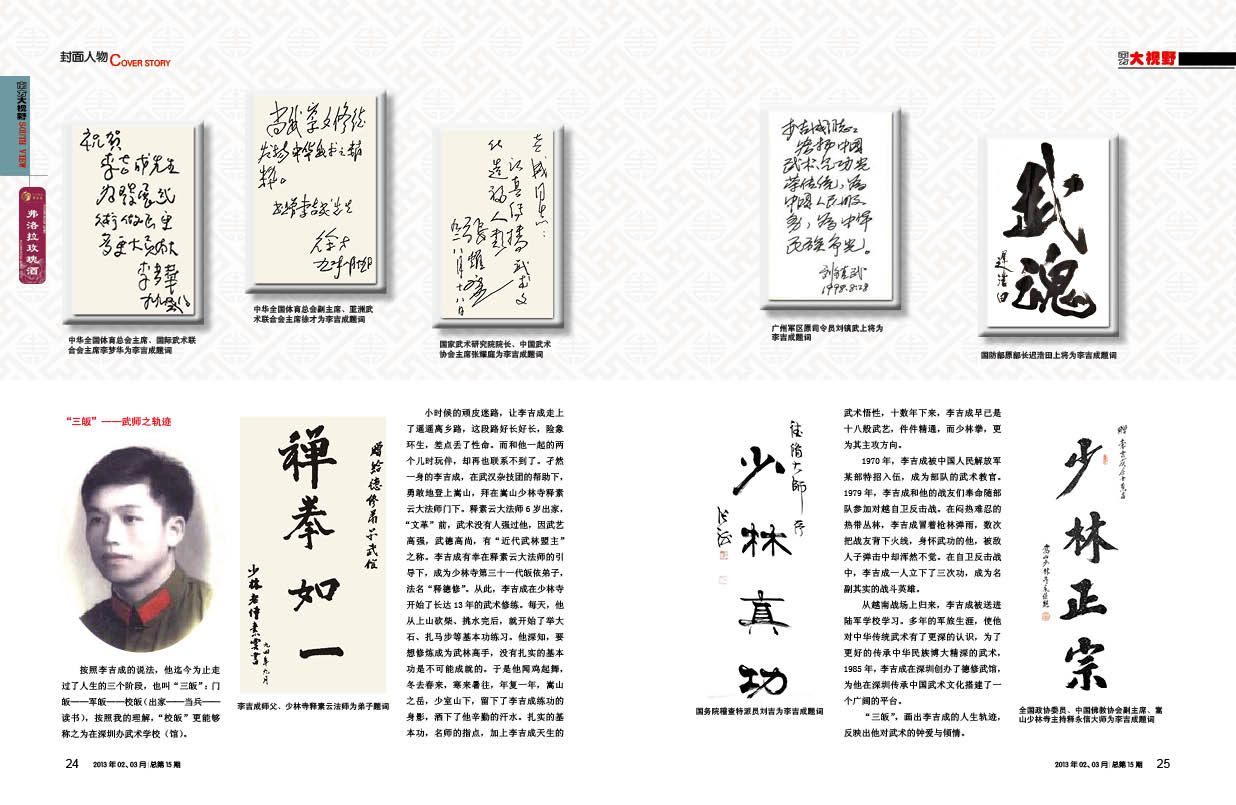 封面人物 COVER STORY
大视野
大视野 SOUTH VIEW
弗洛拉玫瑰酒
祝贺
李吉成先生
为发展武
术做出更
多更大贡献
李梦华
中华全国体育总会主席、国际武术联
合会主席李梦华为李吉成题词
尚武崇文修德
发扬中华武术之精
粹。
书赠李吉成先生
徐才
中华全国体育总会副主席、亚洲武
术联合会主席徐才为李吉成题词
吉成同志:
认真传播武术文
以造福人类
张耀庭
八月十八日
国家武术研究院院长、中国武术
协会主席张耀庭为李吉成题词
李吉成同志:
弘扬中国
武术气功光
荣传统,为
中国人民服
务,为中华
民族争光。
刘镇武
1998.8.28
广州军区原司令员刘镇武上将为
李吉成题词
武魂
迟浩田
国防部原部长迟浩田上将为李吉成题词
“三皈”——武师之轨迹
按照李吉成的说法,他迄今为止走
过了人生的三个阶段,也叫“三皈”:门
皈——军皈——校皈(出家——当兵——
读书),按照我的理解,“校皈”更能够
称之为在深圳办武术学校(馆)。
赠给德修弟子武信
禅拳如一
少林老僧素云书
九四年九月
李吉成师父、少林寺释素云法师为弟子题词
小时候的顽皮迷路,让李吉成走上
了遥遥离乡路,这段路好长好长,险象
环生,差点丢了性命。而和他一起的两
个儿时玩伴,却再也联系不到了。孑然
一身的李吉成,在武汉杂技团的帮助下,
勇敢地登上嵩山,拜在嵩山少林寺释素
云大法师门下。释素云大法师6岁出家,
“文革”前,武术没有人强过他,因武艺
高强,武德高尚,有“近代武林盟主”
之称。李吉成有幸在释素云大法师的引
导下,成为少林寺第三十一代皈依弟子,
法名“释德修”。从此,李吉成在少林寺
开始了长达13年的武术修练。每天,他
从上山砍柴、挑水完后,就开始了举大
石、扎马步等基本功练习。他深知,要
想修炼成为武林高手,没有扎实的基本
功是不可能成就的。于是他闻鸡起舞,
冬去春来,寒来暑往,年复一年,嵩山
之岳,少室山下,留下了李吉成练功的
身影,洒下了他辛勤的汗水。扎实的基
本功,名师的指点,加上李吉成天生的
德修大师
少林真功
国务院稽查特派员刘吉为李吉成题词
武术悟性,十数年下来,李吉成早已是
十八般武艺,件件精通,而少林拳,更
为其主攻方向。
1970年,李吉成被中国人民解放军
某部特招入伍,成为部队的武术教官。
1979年,李吉成和他的战友们奉命随部
队参加对越自卫反击战。在闷热难忍的
热带丛林,李吉成冒着枪林弹雨,数次
把战友背下火线,身怀武功的他,被敌
人子弹击中却浑然不觉。在自卫反击战
中,李吉成一人立下了三次功,成为名
副其实的战斗英雄。
从越南战场上归来,李吉成被送进
陆军学校学习。多年的军旅生涯,使他
对中华传统武术有了更深的认识,为了
更好的传承中华民族博大精深的武术,
1985年,李吉成在深圳创办了德修武馆,
为他在深圳传承中国武术文化搭建了一
个广阔的平台。
“三皈”,画出李吉成的人生轨迹,
反映出他对武术的钟爱与倾情。
少林正宗
全国政协委员、中国佛教协会副主席、嵩
山少林寺主持释永信大师为李吉成题词
24 2013年02、03月|总第15期
2013年02、03月|总第15期 25